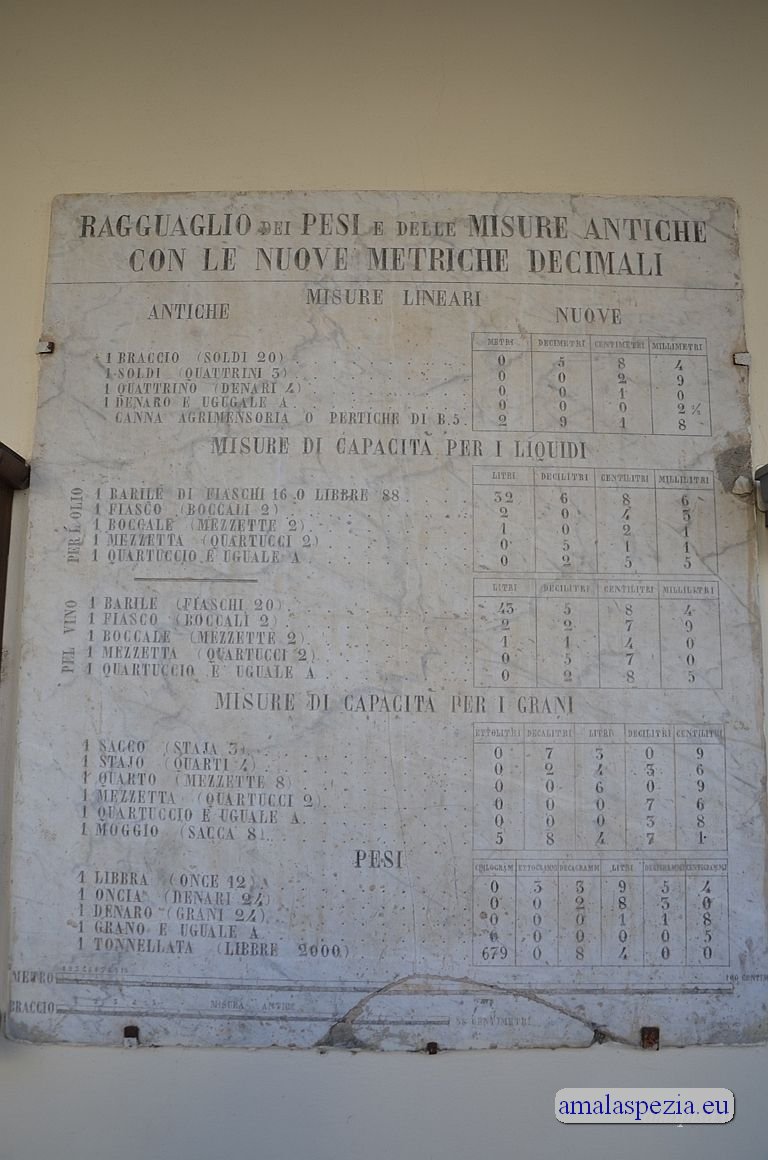 RAGGUAGLIO DEI PESI E DELLE MISURE ANTICHE
CON LE NUOVE METRICHE DECIMALI
MISURE LINEARI
ANTICHE NUOVE
METRI DECIMETRI CENTIMETRI MILLIMETRI
1 BRACCIO (SOLDI 20) 0 5 8 4
1 SOLDI (QUATTRINI 3) 0 0 2 9
1 QUATTRINO (DENARI 4) 0 0 1 0
1 DENARO E UGUGALE A 0 0 0 2
CANNA AGRIMENSORIA O PERTICHE DI B.5. 2 9 1 8
MISURE DI CAPACITÀ PER I LIQUIDI
PER L'OLIO
LITRI DECILITRI CENTILITRI MILLILITRI
1 BARILE DI FIASCHI 16 O LIBBRE 88 32 6 8 6
1 FIASCO (BOCCALI 2) 2 0 4 3
1 BOCCALE (MEZZETTE 2) 1 0 2 1
1 MEZZETTA (QUARTUCCI 2) 0 5 1 1
1 QUARTUCCIO E UGUALE A 0 2 5 5
PEL VINO
LITRI DECILITRI CENTILITRI MILLILETRI
1 BARILE (FIASCHI 20) 43 5 8 4
1 FIASCO (BOCCALI 2) 2 2 7 9
1 BOCCALE (MEZZETTE 2) 1 1 4 0
1 MEZZETTA (QUARTUCCI 2) 0 5 7 0
1 QUARTUCCIO E UGUALE A 0 2 8 5
MISURE DI CAPACITÀ PER I GRANI
ETTOLITRI DECALITRI LITRI DECILITRI CENTILITRI
1 SACCO (STAJA 3) 0 7 3 0 9
1 STAJO (QUARTI 4) 0 2 4 3 6
1 QUARTO (MEZZETTE 8) 0 0 6 0 9
1 MEZZETTA (QUARTUCCI 2) 0 0 0 7 6
1 QUARTUCCIO E UGUALE A 0 0 0 3 8
1 MOGGIO (SACCA 8) 5 8 4 7 1
PESI
CHILOGRAM ETTOGRAMMI DECAGRAMM LITRI DECIGRAMMI CENTOGRAMMI
1 LIBBRA (ONCE 12) 0 3 3 9 5 4
1 ONCIA (DENARI 24) 0 0 2 8 3 0
1 DENARO (GRANI 24) 0 0 0 1 1 8
1 GRANO E UGUALE A 0 0 0 0 0 5
1 TONNELLATA (LIBBRE 2000) 679 0 8 4 0 0
METRO 100 CENTIM
BRACCIO MISURA ANTICA
58 CENTIMETRI
amalaspezia.eu